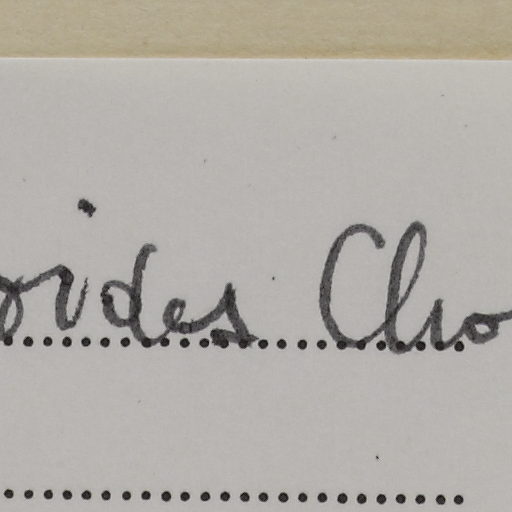 oides Cho